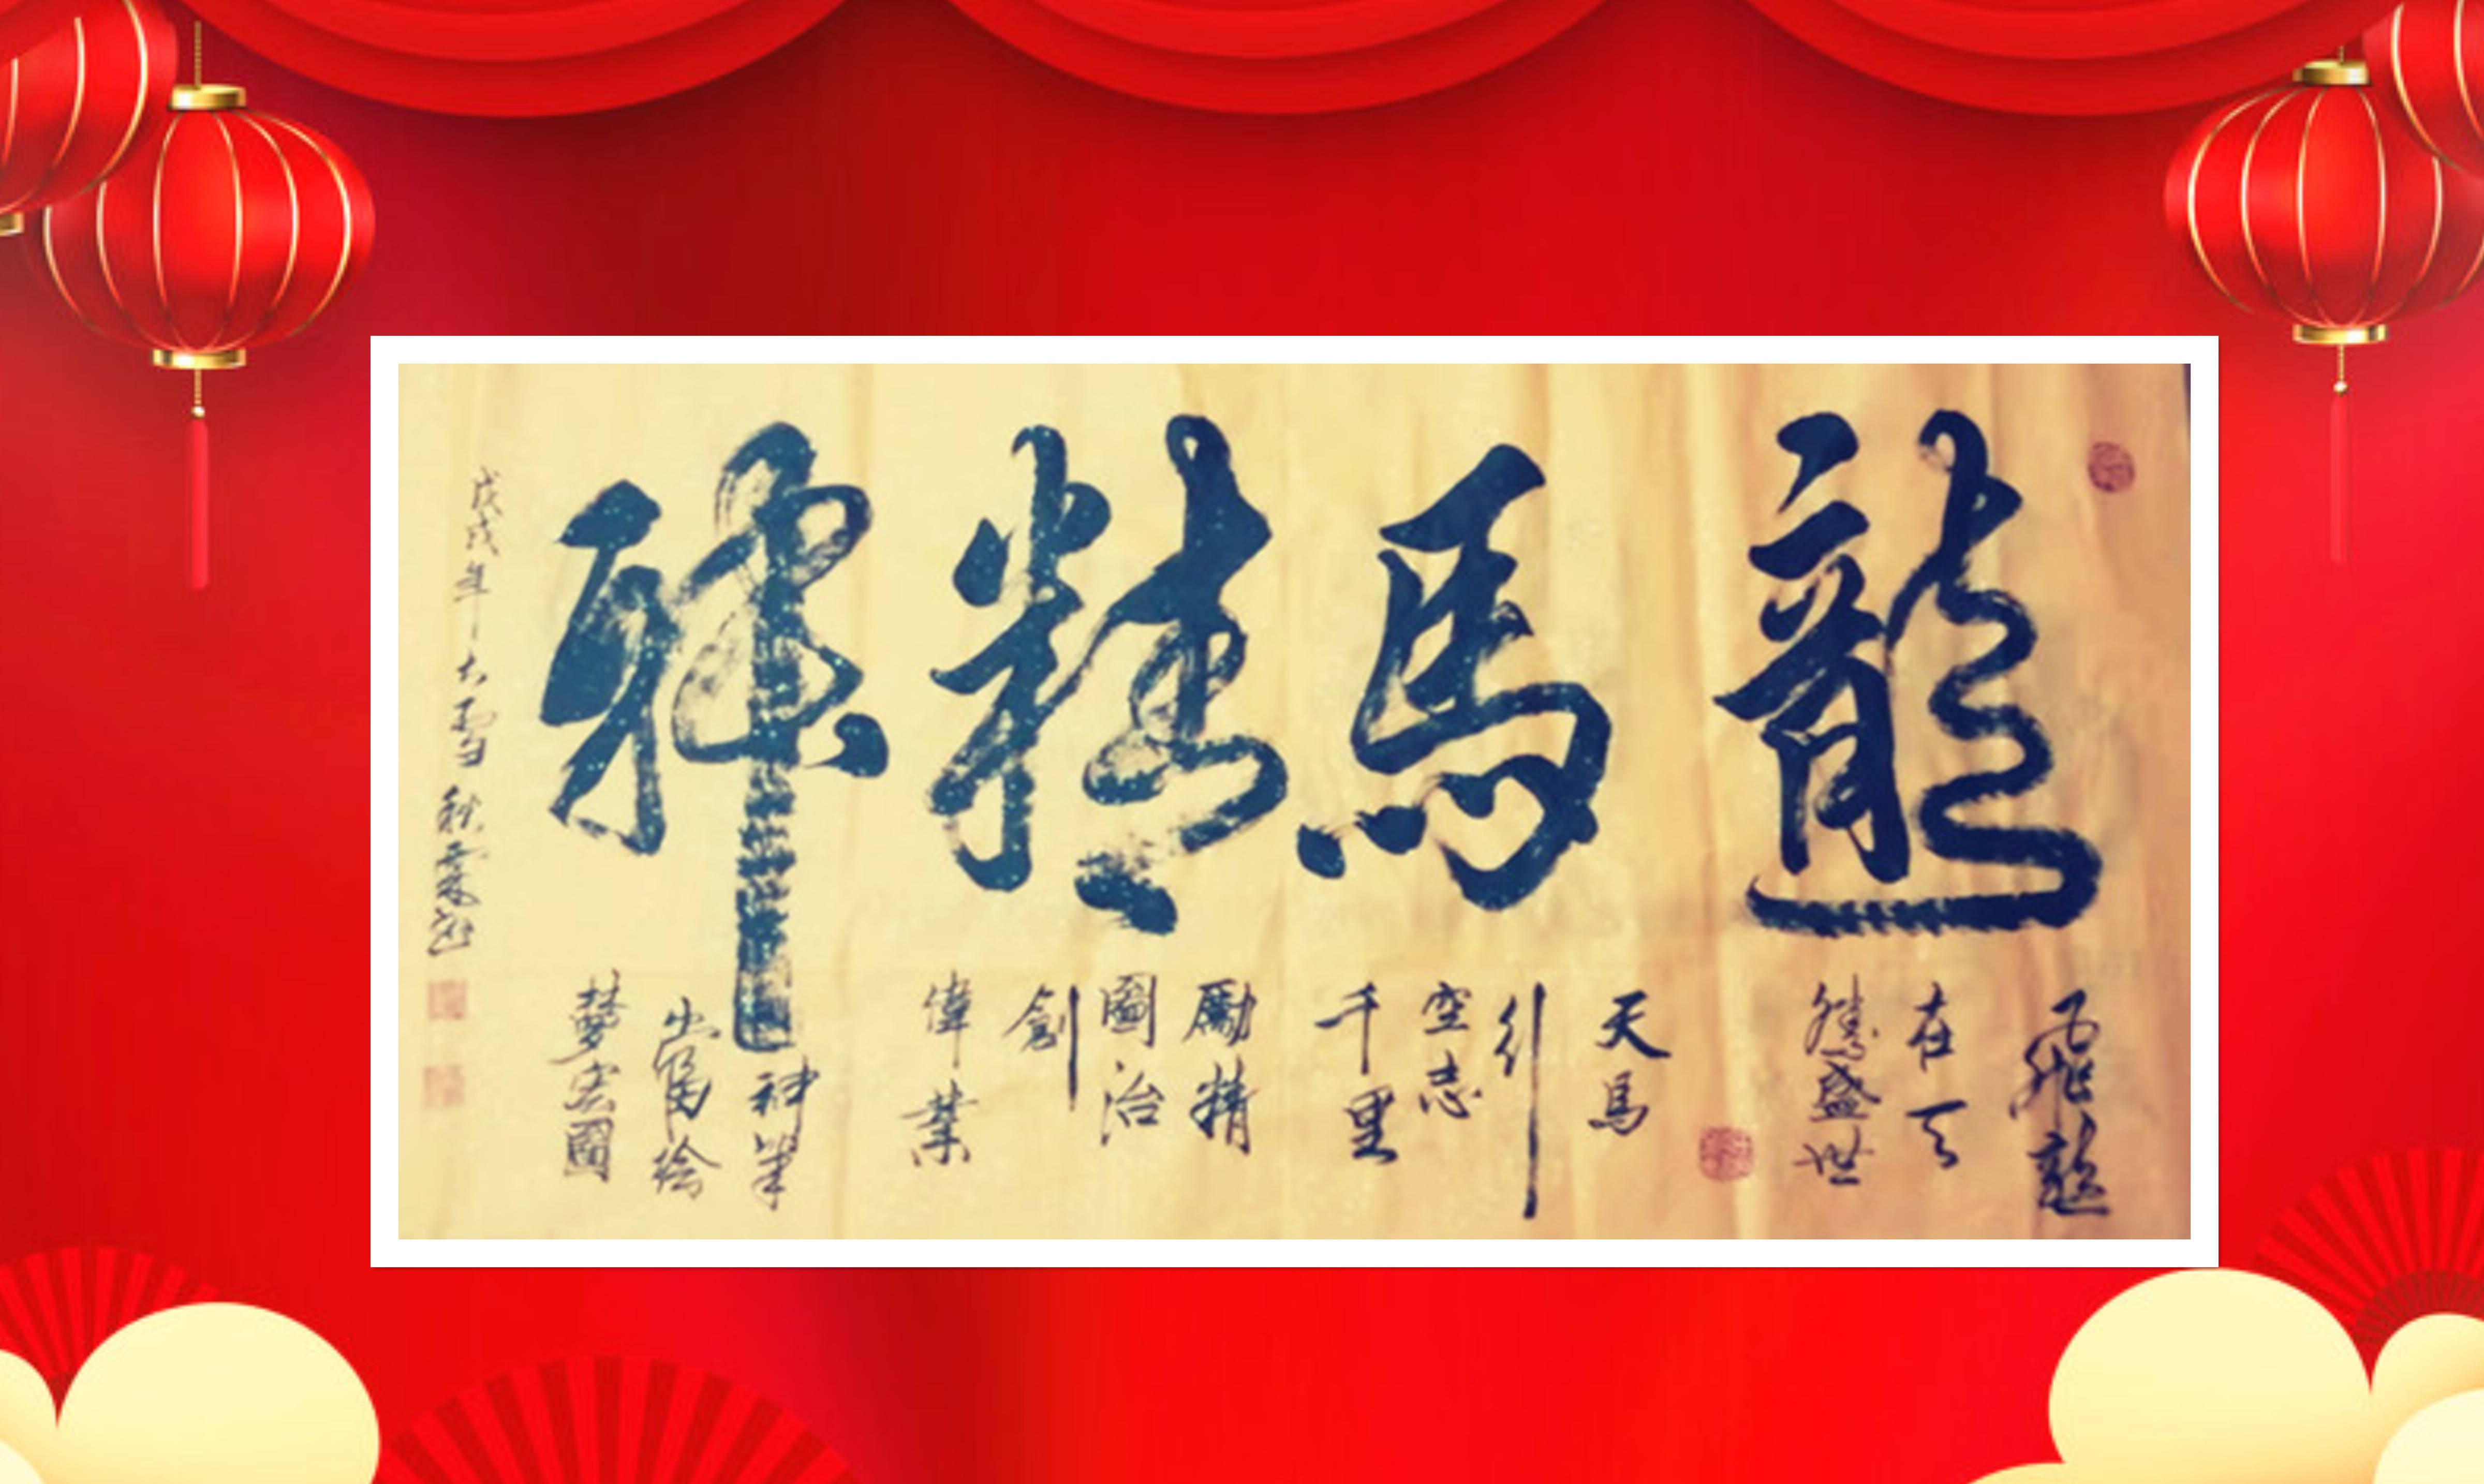 龍馬精神
飛龍
在天
騰盛世
天馬
行
空志
千里
勵精
圖治
創
偉業
神筆
繪
夢宏圖
戊戌年大雪